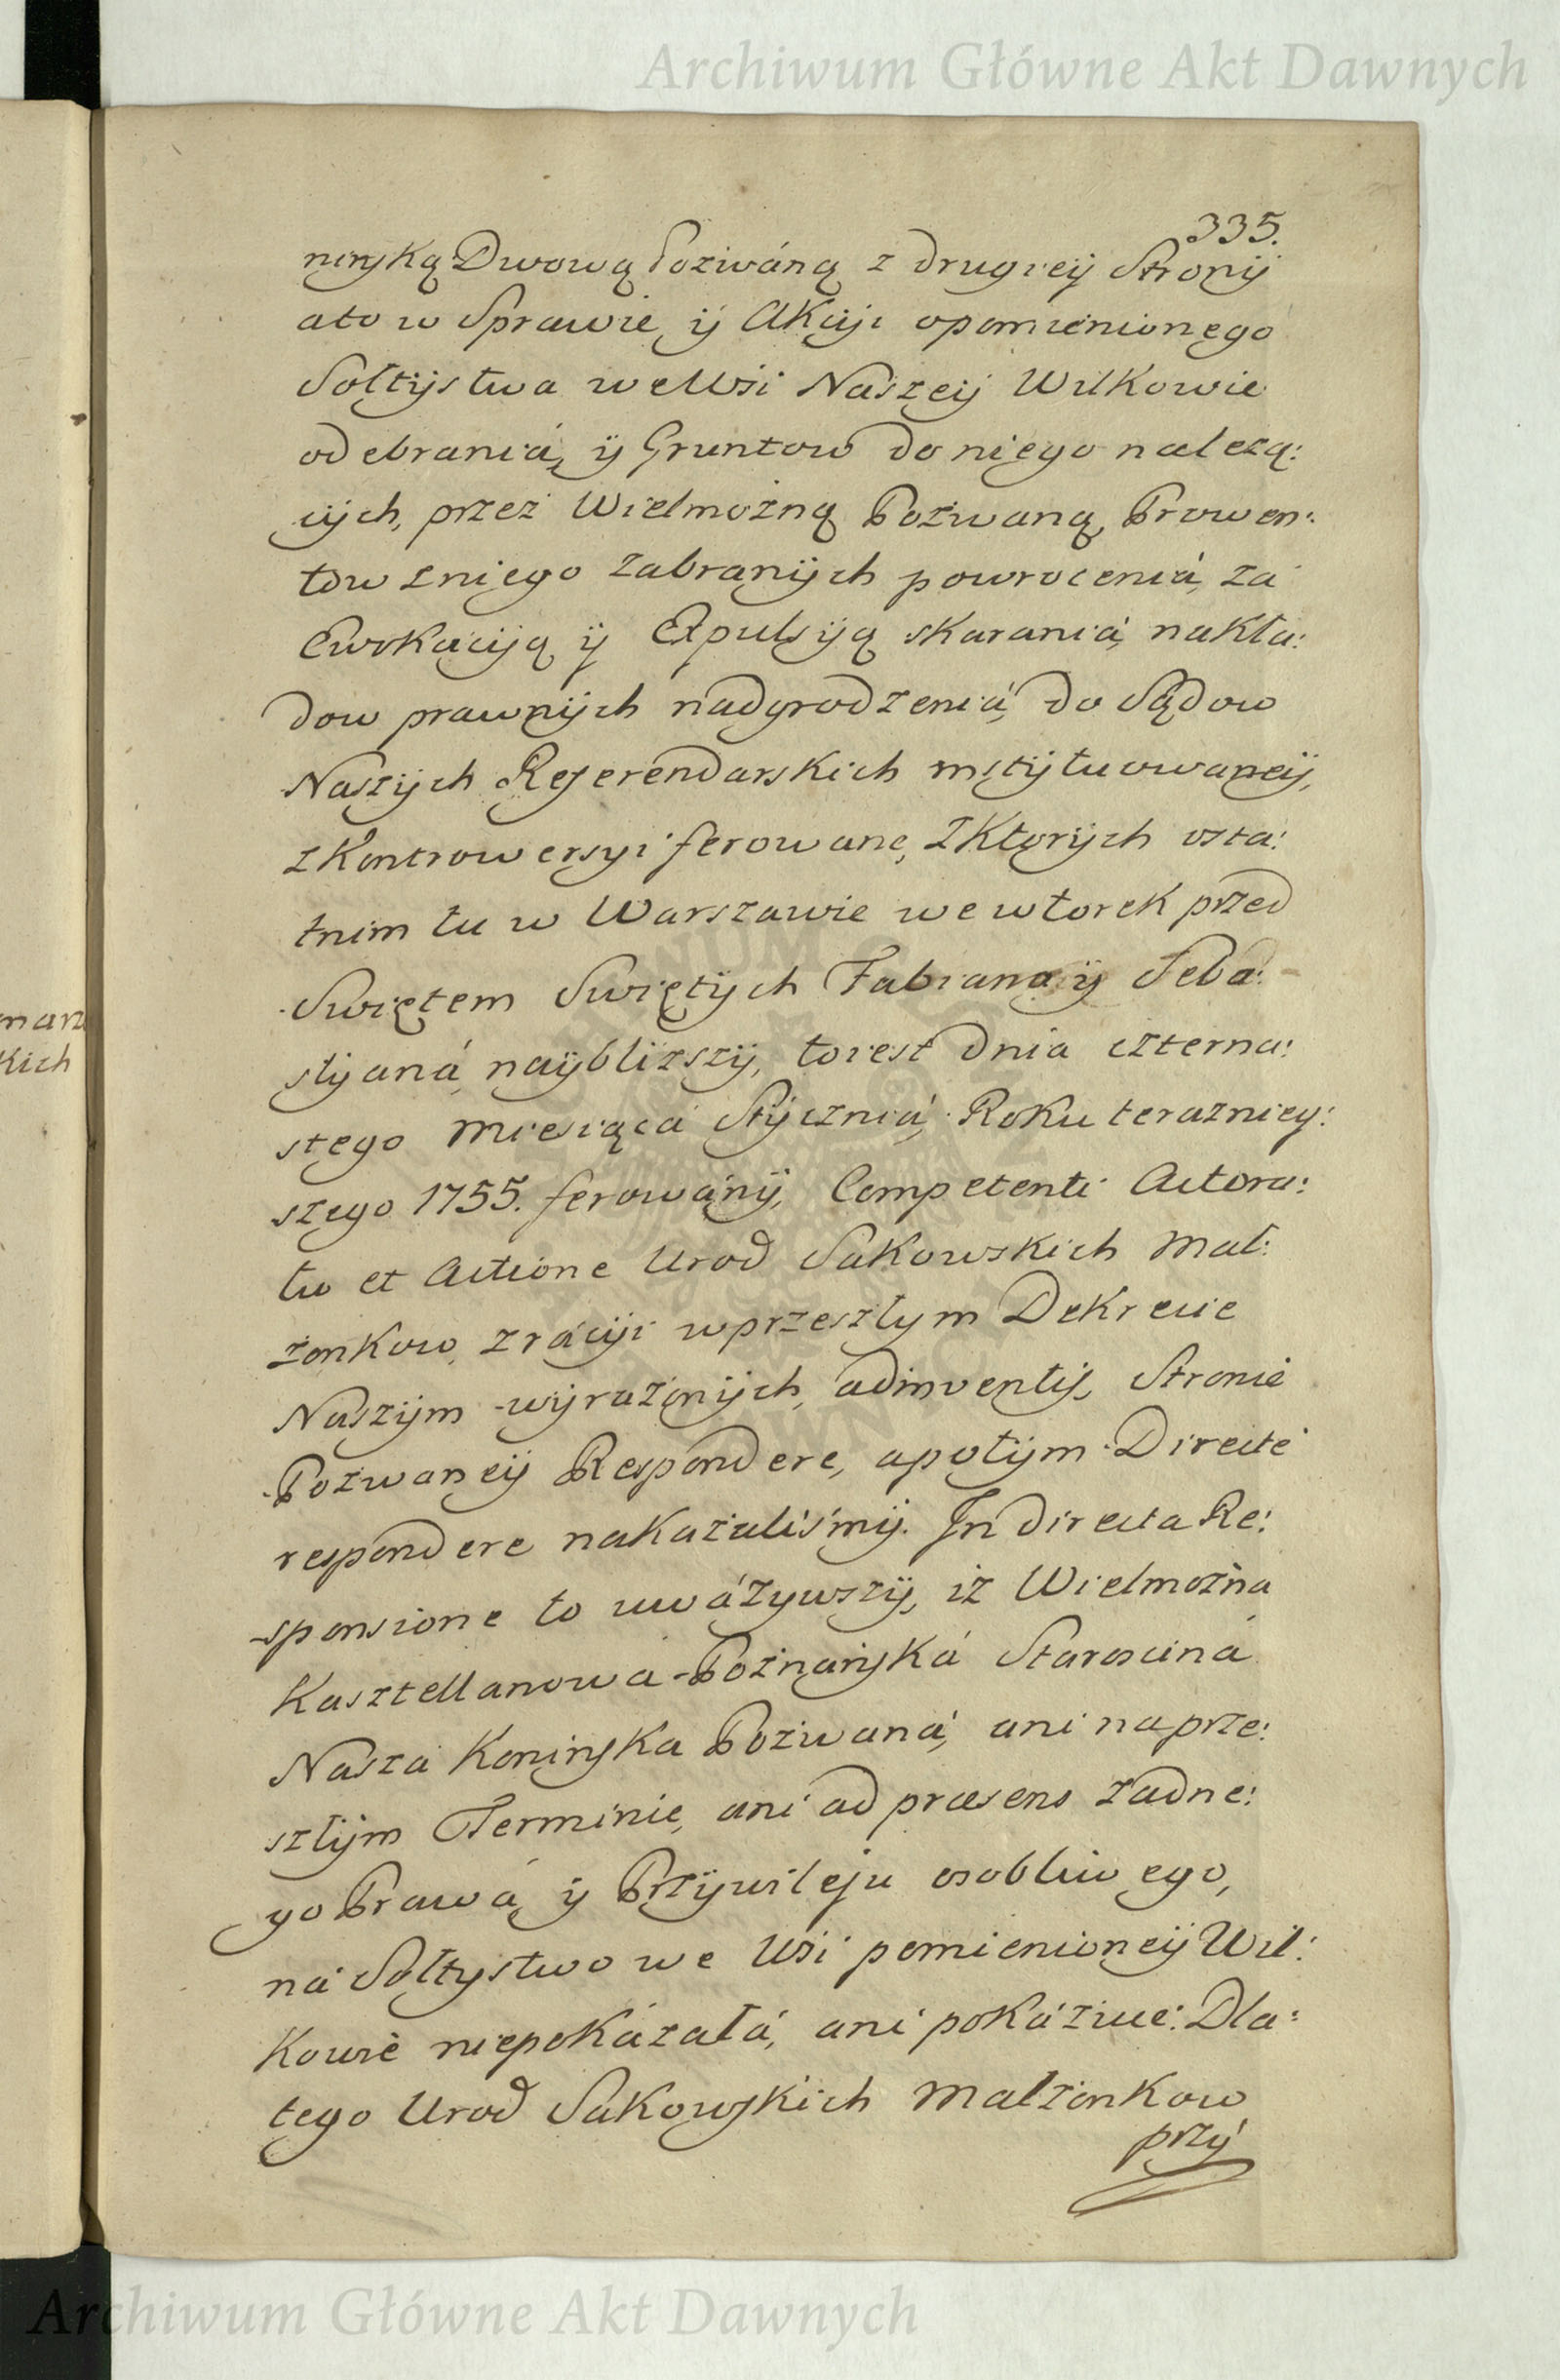 Archiwum Główne Akt Dawnych
335.
ninską Dwową Poziwáną z drugiey Strony
ato w Sprawie, ÿ Akcyi opomienionego
Sołtystwa we Wsi Naszeÿ Wilkowie
odebraniá, ÿ Gruntow do niego należą:
cÿch, przez Wielmożną Pozwaną, Prowen:
tow zniego zabranÿch powroceniá, za
Ewokacÿją ÿ Expulsÿą skaraniá, nakła:
dow prawnÿch nadgrodzeniá, do Sądow
Naszÿch Referendarskich instÿtuowaneÿ,
z Kontrowersyi ferowane, z Ktorÿch osta:
tnim tu w Warszawie we wtorek przed
Swiętem Swiętÿch Fabiana ÿ Seba:
styaná, naÿbliższÿ, toiest dnia czterna:
stego Miesiącá Stÿczniá, Roku terazniey:
szego 1755. ferowánÿ, Competenti Actora:
tu et Actione Urod Sakowskich Mał:
żonkow, z rácÿi w przeszłym Dekrecie
Naszÿm wÿrażonÿch, adinventis, Stronie
Pozwaneÿ Respondere, apotÿm Directé
respondere nakazaliśmÿ. In directa Re:
sponsione to uwáżywszÿ, iż Wielmożna
Kasztellanowa Poznańská Starościná
Nasza Koninska Pozwaná, ani na prze:
szłÿm Terminie, ani ad præsens żadne:
go Prawá, ÿ Przÿwileju osobliwego,
ná Sołtystwo we Wsi pomienioneÿ Wil:
kowie niepokázałá, ani pokázuie: Dla:
tego Urod Sakowskich Małżonkow
przÿ
man
kich
Archiwum Główne Akt Dawnych